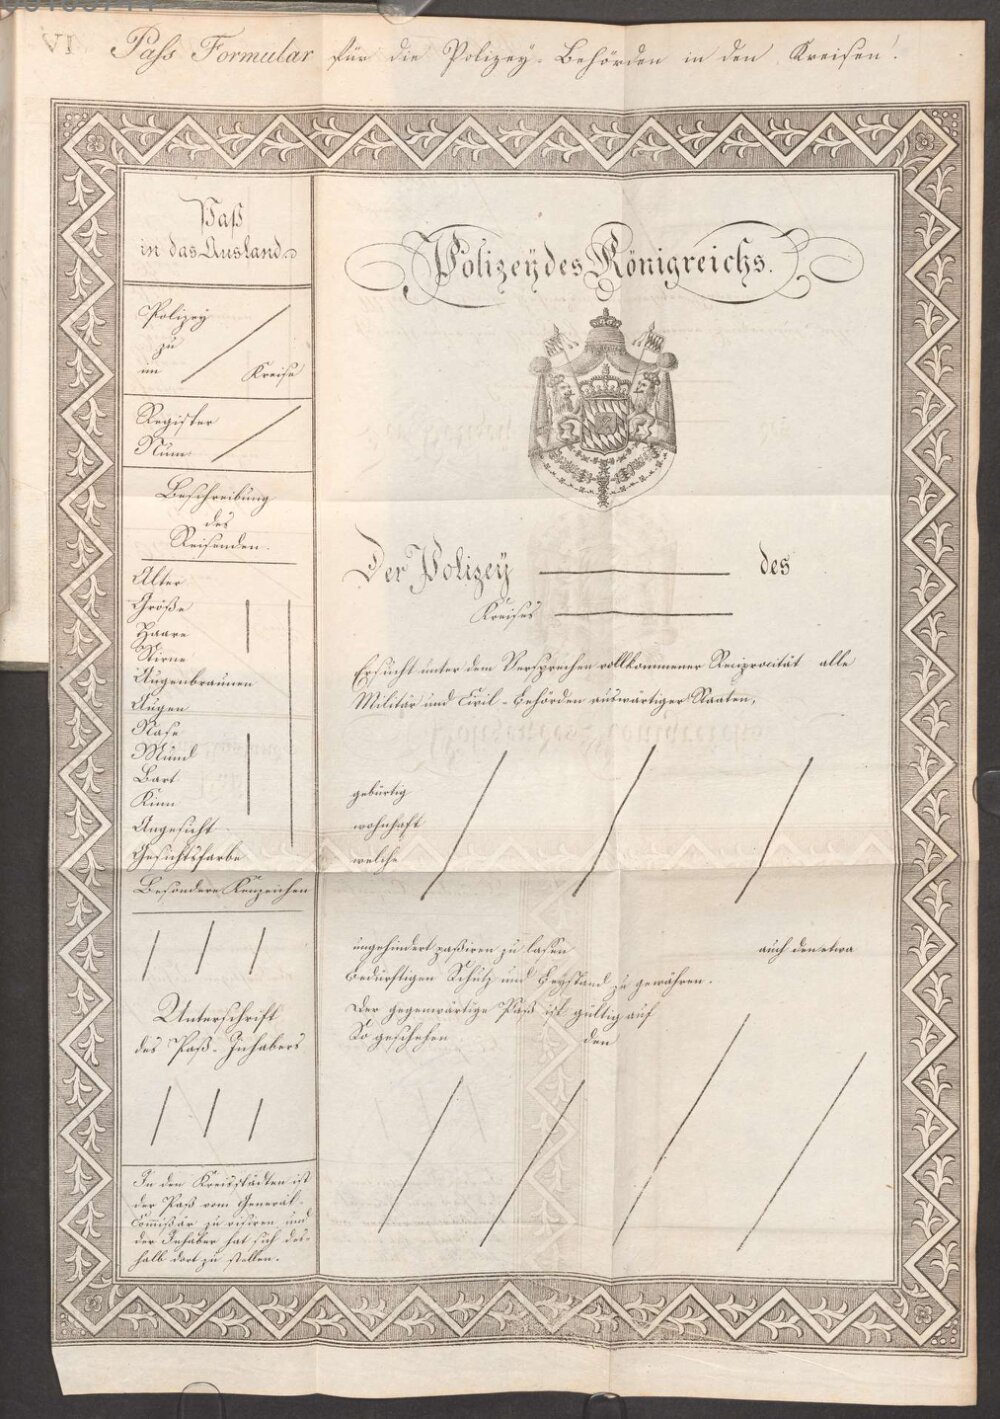 VI. Pass Formular für die Polizey-Behörden in den Kreisen.
Paß
in das Ausland
Polizey
zu
im Kreise
Register
Num:
Beschreibung
des
Reisenden.
Alter
Größe
Haare
Stirne
Augenbraunen
Augen
Nase
Mund
Bart
Kinn
Angesicht
Gesichtsfarbe
Besondere Kenzeichen
Unterschrift
des Paß-Inhabers
In den Kreisstädten ist
der Paß vom General-
Commissär zu visiren und
der Inhaber hat sich des-
halb dort zu stellen.
Polizey des Königreichs.
Der Polizey des
Kreises
Ersucht unter dem Versprechen vollkommener Reciprocität alle
Militär und Civil-Behörden auswärtiger Staaten,
gebürtig
wohnhaft
welche
ungehindert paßiren zu lassen auch den etwa
bedürftigen Schutz und Beystand zu gewähren.
Der gegenwärtige Paß ist gültig auf
So geschehen den